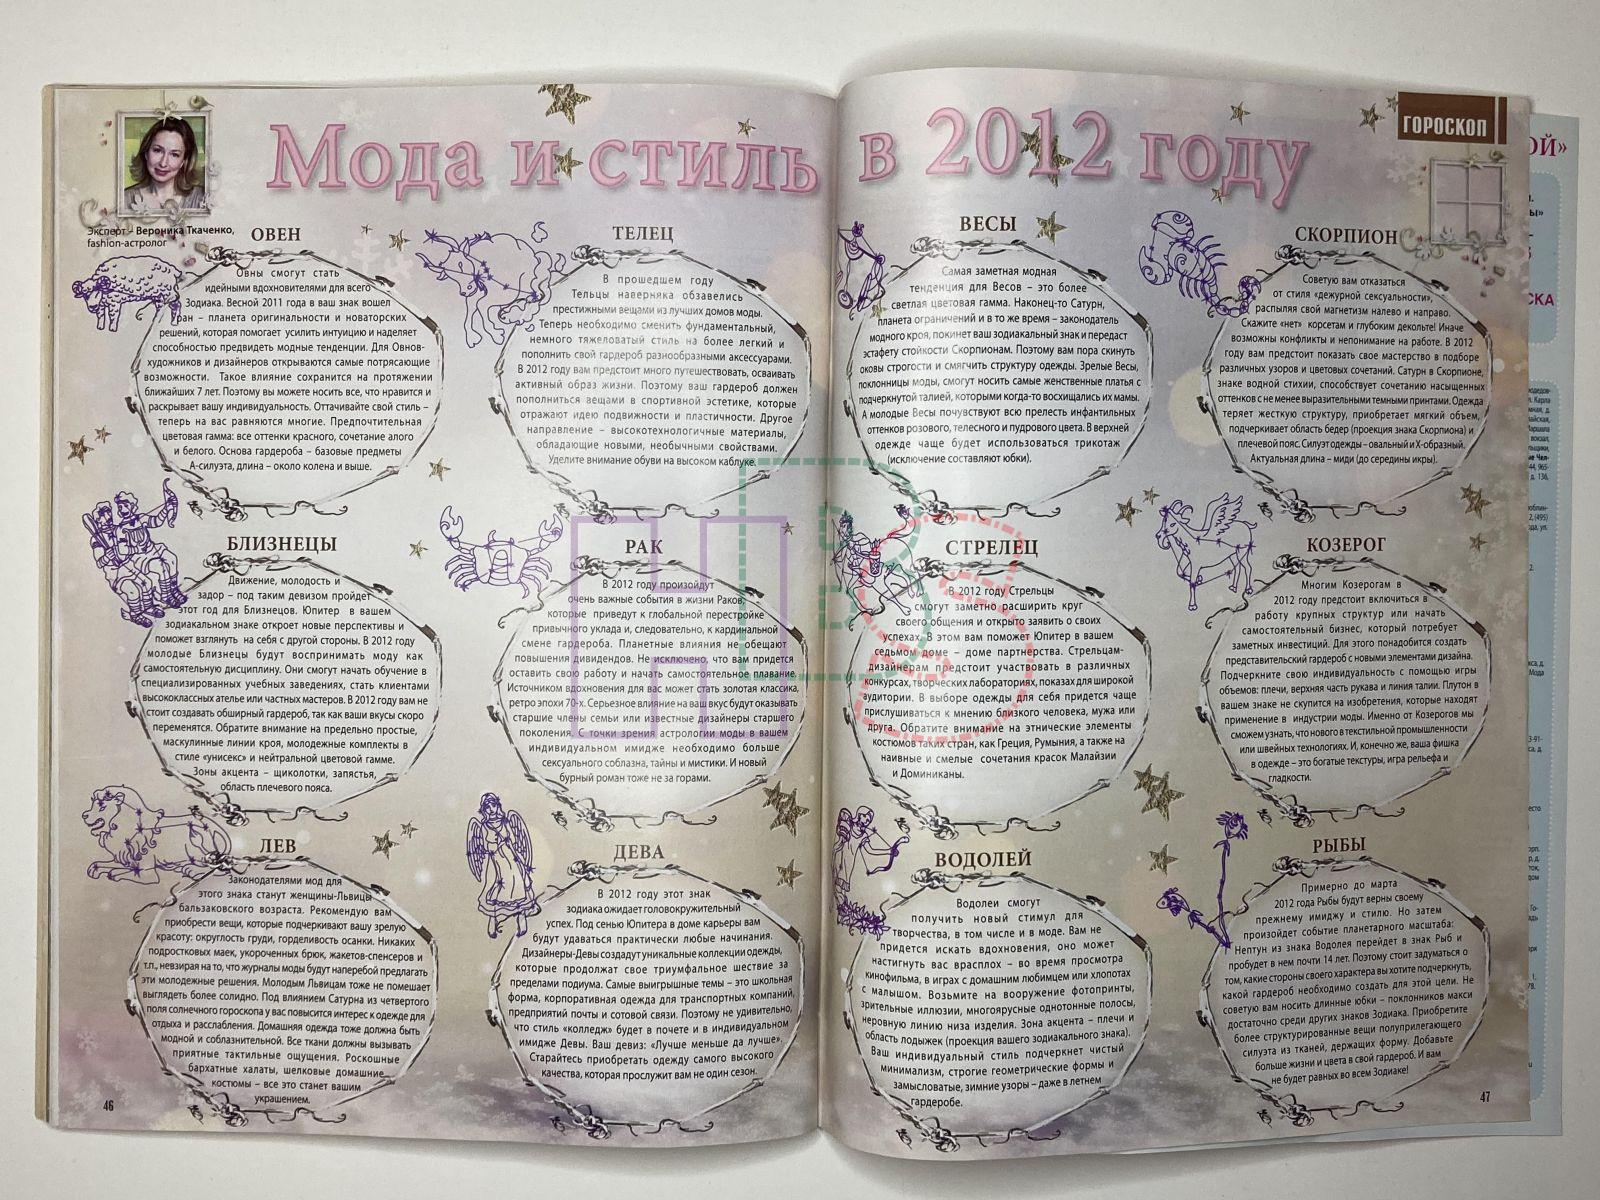 Мода и стиль в 2012 году
ГОРОСКОП
Эксперт – Вероника Ткаченко,
fashion-астролог
ОВЕН
Овны смогут стать
идейными вдохновителями для всего
Зодиака. Весной 2011 года в ваш знак вошел
Уран – планета оригинальности и новаторских
решений, которая помогает усилить интуицию и наделяет
способностью предвидеть модные тенденции. Для Овнов-
художников и дизайнеров открываются самые потрясающие
возможности. Такое влияние сохранится на протяжении
ближайших 7 лет. Поэтому вы можете носить все, что нравится и
раскрывает вашу индивидуальность. Оттачивайте свой стиль –
теперь на вас равняются многие. Предпочтительная
цветовая гамма: все оттенки красного, сочетание алого
и белого. Основа гардероба – базовые предметы
А-силуэта, длина – около колена и выше.
ТЕЛЕЦ
В прошедшем году
Тельцы наверняка обзавелись
престижными вещами из лучших домов моды.
Теперь необходимо сменить фундаментальный,
немного тяжеловатый стиль на более легкий и
пополнить свой гардероб разнообразными аксессуарами.
В 2012 году вам предстоит много путешествовать, осваивать
активный образ жизни. Поэтому ваш гардероб должен
пополниться вещами в спортивной эстетике, которые
отражают идею подвижности и пластичности. Другое
направление – высокотехнологичные материалы,
обладающие новыми, необычными свойствами.
Уделите внимание обуви на высоком каблуке.
БЛИЗНЕЦЫ
Движение, молодость и
задор – под таким девизом пройдет
этот год для Близнецов. Юпитер в вашем
зодиакальном знаке откроет новые перспективы и
поможет взглянуть на себя с другой стороны. В 2012 году
молодые Близнецы будут воспринимать моду как
самостоятельную дисциплину. Они смогут начать обучение в
специализированных учебных заведениях, стать клиентами
высококлассных ателье или частных мастеров. В 2012 году вам не
стоит создавать обширный гардероб, так как ваши вкусы скоро
переменятся. Обратите внимание на предельно простые,
маскулинные линии кроя, молодежные комплекты в
стиле «унисекс» и нейтральной цветовой гамме.
Зоны акцента – щиколотки, запястья,
область плечевого пояса.
РАК
В 2012 году произойдут
очень важные события в жизни Раков,
которые приведут к глобальной перестройке
привычного уклада и, следовательно, к кардинальной
смене гардероба. Планетные влияния не обещают
повышения дивидендов. Не исключено, что вам придется
оставить свою работу и начать самостоятельное плавание.
Источником вдохновения для вас может стать золотая классика,
ретро эпохи 70-х. Серьезное влияние на ваш вкус будут оказывать
старшие члены семьи или известные дизайнеры старшего
поколения. С точки зрения астрологии моды в вашем
индивидуальном имидже необходимо больше
сексуального соблазна, тайны и мистики. И новый
бурный роман тоже не за горами.
ЛЕВ
Законодателями мод для
этого знака станут женщины-Львицы
бальзаковского возраста. Рекомендую вам
приобрести вещи, которые подчеркивают вашу зрелую
красоту: округлость груди, горделивость осанки. Никаких
подростковых маек, укороченных брюк, жакетов-спенсеров и
т.п., невзирая на то, что журналы моды будут наперебой предлагать
эти молодежные решения. Молодым Львицам тоже не помешает
выглядеть более солидно. Под влиянием Сатурна из четвертого
поля солнечного гороскопа у вас повысится интерес к одежде для
отдыха и расслабления. Домашняя одежда тоже должна быть
модной и соблазнительной. Все ткани должны вызывать
приятные тактильные ощущения. Роскошные
бархатные халаты, шелковые домашние
костюмы – все это станет вашим
украшением.
ДЕВА
В 2012 году этот знак
зодиака ожидает головокружительный
успех. Под сенью Юпитера в доме карьеры вам
будут удаваться практически любые начинания.
Дизайнеры-Девы создадут уникальные коллекции одежды,
которые продолжат свое триумфальное шествие за
пределами подиума. Самые выигрышные темы – это школьная
форма, корпоративная одежда для транспортных компаний,
предприятий почты и сотовой связи. Поэтому не удивительно,
что стиль «колледж» будет в почете и в индивидуальном
имидже Девы. Ваш девиз: «Лучше меньше да лучше».
Старайтесь приобретать одежду самого высокого
качества, которая прослужит вам не один сезон.
46
ВЕСЫ
Самая заметная модная
тенденция для Весов – это более
светлая цветовая гамма. Наконец-то Сатурн,
планета ограничений и в то же время – законодатель
модного кроя, покинет ваш зодиакальный знак и передаст
эстафету стойкости Скорпионам. Поэтому вам пора скинуть
оковы строгости и смягчить структуру одежды. Зрелые Весы,
поклонницы моды, смогут носить самые женственные платья с
подчеркнутой талией, которыми когда-то восхищались их мамы.
А молодые Весы почувствуют всю прелесть инфантильных
оттенков розового, телесного и пудрового цвета. В верхней
одежде чаще будет использоваться трикотаж
(исключение составляют юбки).
СКОРПИОН
Советую вам отказаться
от стиля «дежурной сексуальности»,
распыляя свой магнетизм налево и направо.
Скажите «нет» корсетам и глубоким декольте! Иначе
возможны конфликты и непонимание на работе. В 2012
году вам предстоит показать свое мастерство в подборе
различных узоров и цветовых сочетаний. Сатурн в Скорпионе,
знаке водной стихии, способствует сочетанию насыщенных
оттенков с не менее выразительными темными принтами. Одежда
теряет жесткую структуру, приобретает мягкий объем,
подчеркивает область бедер (проекция знака Скорпиона) и
плечевой пояс. Силуэт одежды – овальный и Х-образный.
Актуальная длина – миди (до середины икры).
СТРЕЛЕЦ
В 2012 году Стрельцы
смогут заметно расширить круг
своего общения и открыто заявить о своих
успехах. В этом вам поможет Юпитер в вашем
седьмом доме – доме партнерства. Стрельцам-
дизайнерам предстоит участвовать в различных
конкурсах, творческих лабораториях, показах для широкой
аудитории. В выборе одежды для себя придется чаще
прислушиваться к мнению близкого человека, мужа или
друга. Обратите внимание на этнические элементы
костюмов таких стран, как Греция, Румыния, а также на
наивные и смелые сочетания красок Малайзии
и Доминиканы.
КОЗЕРОГ
Многим Козерогам в
2012 году предстоит включиться в
работу крупных структур или начать
самостоятельный бизнес, который потребует
заметных инвестиций. Для этого понадобится создать
представительский гардероб с новыми элементами дизайна.
Подчеркните свою индивидуальность с помощью игры
объемов: плечи, верхняя часть рукава и линия талии. Плутон в
вашем знаке не скупится на изобретения, которые находят
применение в индустрии моды. Именно от Козерогов мы
сможем узнать, что нового в текстильной промышленности
или швейных технологиях. И, конечно же, ваша фишка
в одежде – это богатые текстуры, игра рельефа и
гладкости.
ВОДОЛЕЙ
Водолеи смогут
получить новый стимул для
творчества, в том числе и в моде. Вам не
придется искать вдохновения, оно может
настигнуть вас врасплох – во время просмотра
кинофильма, в играх с домашним любимцем или хлопотах
с малышом. Возьмите на вооружение фотопринты,
зрительные иллюзии, многоярусные однотонные полосы,
неровную линию низа изделия. Зона акцента – плечи и
область лодыжек (проекция вашего зодиакального знака).
Ваш индивидуальный стиль подчеркнет чистый
минимализм, строгие геометрические формы и
замысловатые, зимние узоры – даже в летнем
гардеробе.
РЫБЫ
Примерно до марта
2012 года Рыбы будут верны своему
прежнему имиджу и стилю. Но затем
произойдет событие планетарного масштаба:
Нептун из знака Водолея перейдет в знак Рыб и
пробудет в нем почти 14 лет. Поэтому стоит задуматься о
том, какие стороны своего характера вы хотите подчеркнуть,
какой гардероб необходимо создать для этой цели. Не
советую вам носить длинные юбки – поклонников макси
достаточно среди других знаков Зодиака. Приобретите
более структурированные вещи полуприлегающего
силуэта из тканей, держащих форму. Добавьте
больше жизни и цвета в свой гардероб. И вам
не будет равных во всем Зодиаке!
47